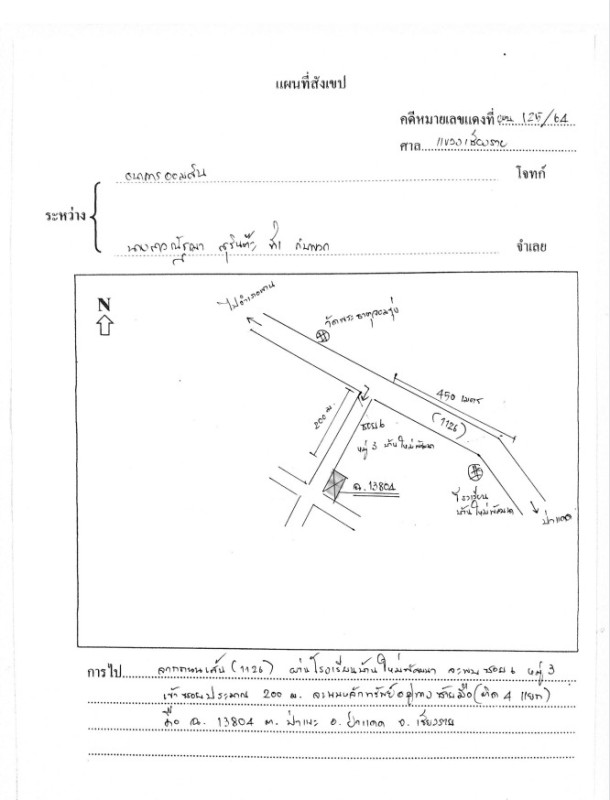 แผนที่สังเขป
คดีหมายเลขแดงที่ 125/64
ศาล แขวงเชียงราย
ธนาคารออมสิน โจทก์
ระหว่าง
นางสาวณัฐมา สุรินต๊ะ ที่1 กับพวก จำเลย
N
ไปอำเภอพาน
วัดพระธาตุจอมรุ่ง
450 เมตร
(1126)
200 ม.
ซอย 6
หมู่ 3 บ้านใหม่พัฒนา
ฉ. 13804
โรงเรียน
บ้านใหม่พัฒนา
ป่าแดด
การไป จากถนนเส้น (1126) ผ่านโรงเรียนบ้านใหม่พัฒนา จะพบ ซอย 6 หมู่ 3
เข้าซอยประมาณ 200 ม. จะพบหลักทรัพย์อยู่ทางซ้ายมือ (ติด 4 แยก)
คือ ฉ. 13804 ต. ป่าแงะ อ. ป่าแดด จ. เชียงราย